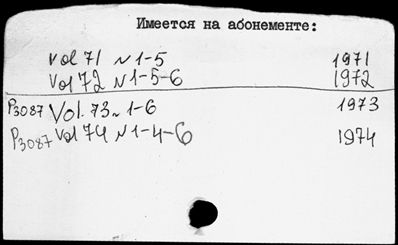 Имеется на абонементе:
Vol 71 N 1-5 1971
Vol 72 N 1-5-6 1972
P3087 Vol. 73 N 1-6 1973
P3087 Vol 74 N 1-4-6 1974